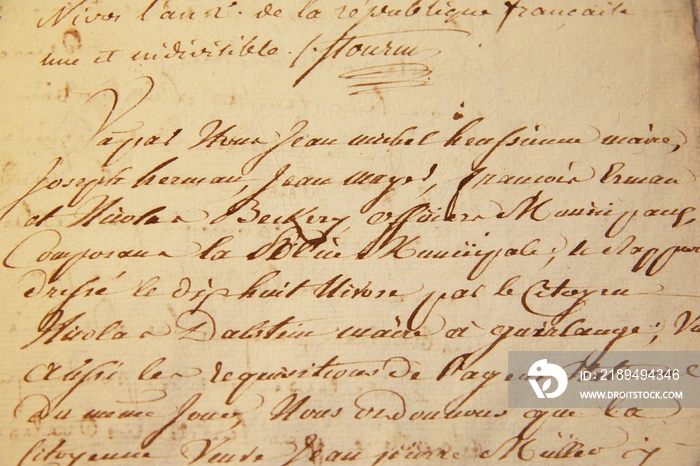 Nivos l'an 2e. de la republique française
une et indivisible. / Stourm
Vu par Nous Jean michel maire,
Joseph herman, Jean mayé, francois Erman
et Nicolas Beckery officiers Municipaux
Composans la Police Municipale; le Rappor
dressé le dix huit Nivose par le Citoyen
Nicolas Dalstein maire a guirlange; Vu
aussi les requisitions de l'agent
du meme Jour, Nous ordonnons que la
Citoyenne Veuve Jean pierre Müller y
dreamstime
ID 2189494346
WWW.DROITSTOCK.COM